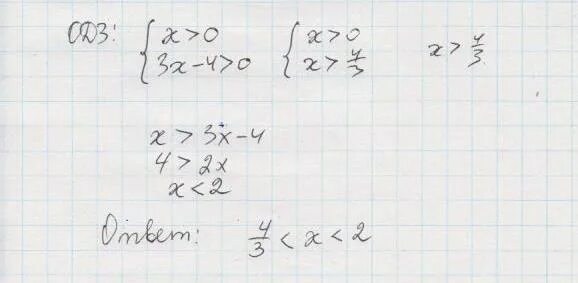 ОДЗ: { x > 0 { x > 0 x > 4/3
3x - 4 > 0 x > 4/3
x > 3x - 4
4 > 2x
x < 2
Ответ: 4/3 < x < 2